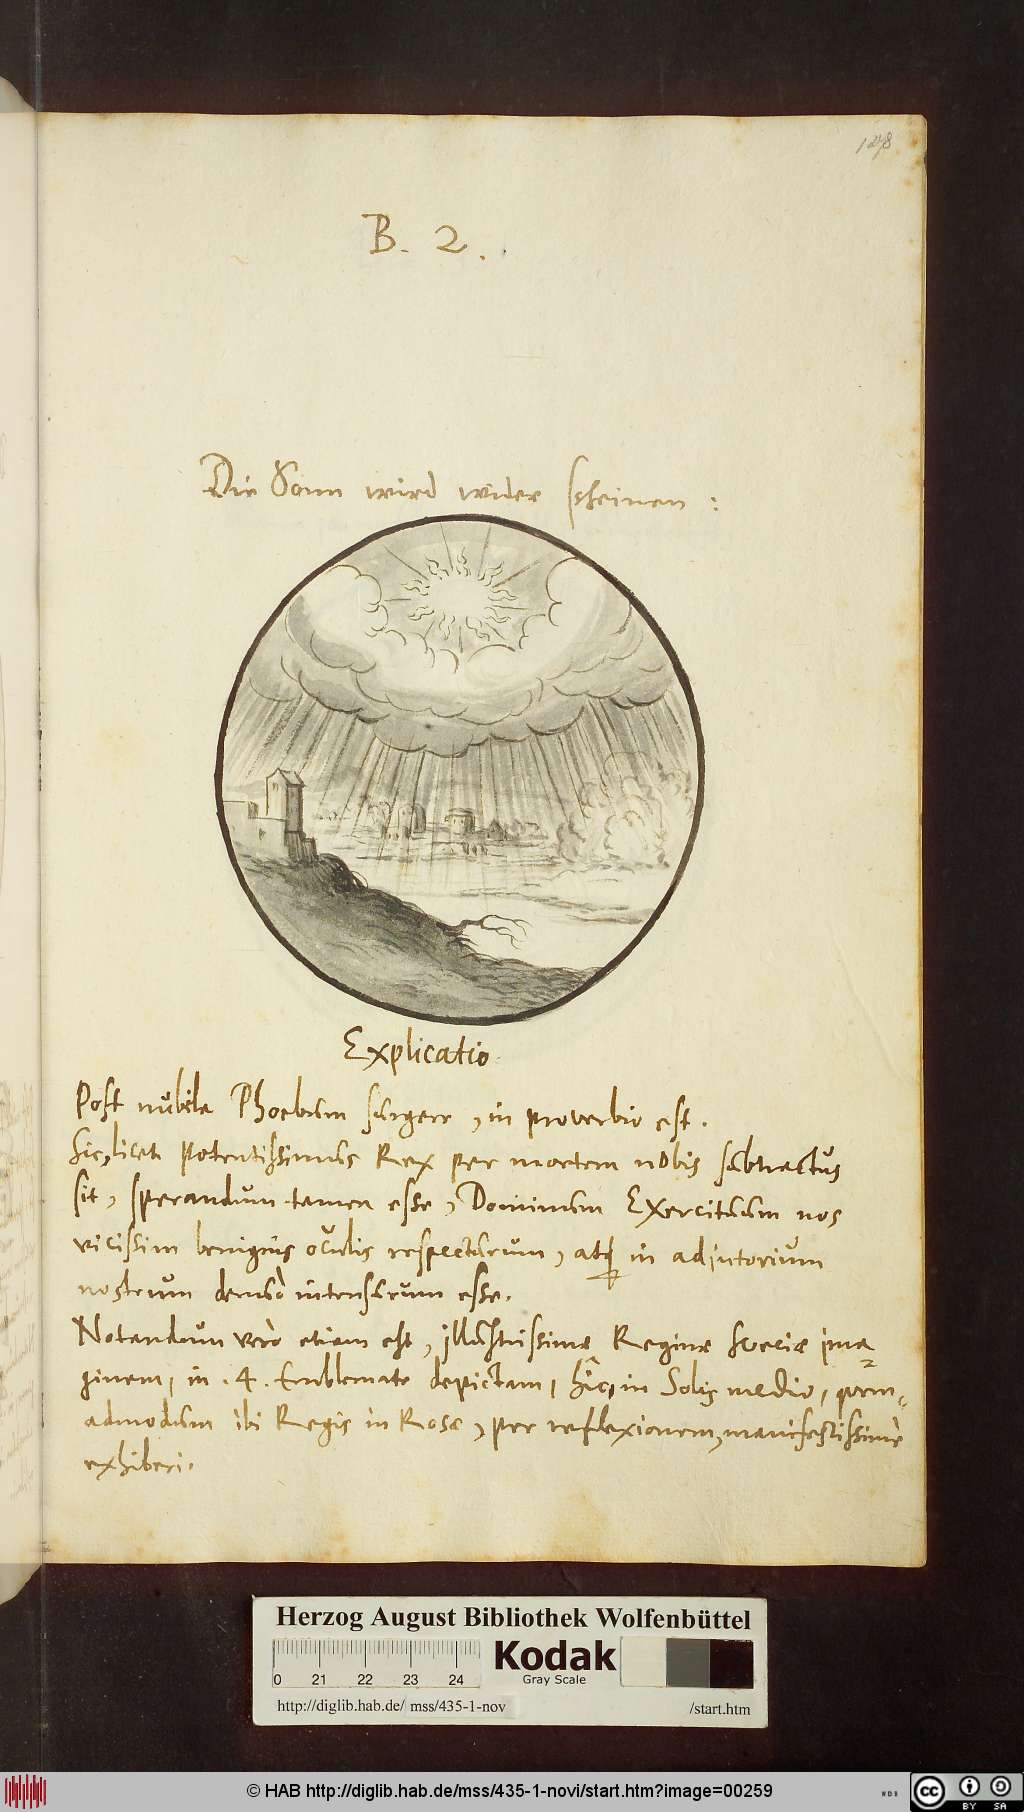 128
B. 2.
Die Sonn wird wider scheinen :
Explicatio.
Post nubila Phoebum surgere, in proverbio est.
Sic, licet potentissimus Rex per mortem nobis subtractus
sit, sperandum tamen esse, Dominum Exercituum nos
vicissim benignis oculis respecturum, atq in adjutorium
nostrum denuò intensurum esse.
Notandum verò etiam est, illustrissimæ Reginæ Sveciæ ima=
ginem, in .4. Emblemate depictam, hîc, in Solis medio, quem=
admodum ibi Regis in Rosa, per reflexionem, manifestissimè
exhiberi.
Herzog August Bibliothek Wolfenbüttel
Kodak
Gray Scale
0 21 22 23 24
http://diglib.hab.de/ mss/435-1-nov /start.htm
© HAB http://diglib.hab.de/mss/435-1-novi/start.htm?image=00259
WDB
cc BY SA